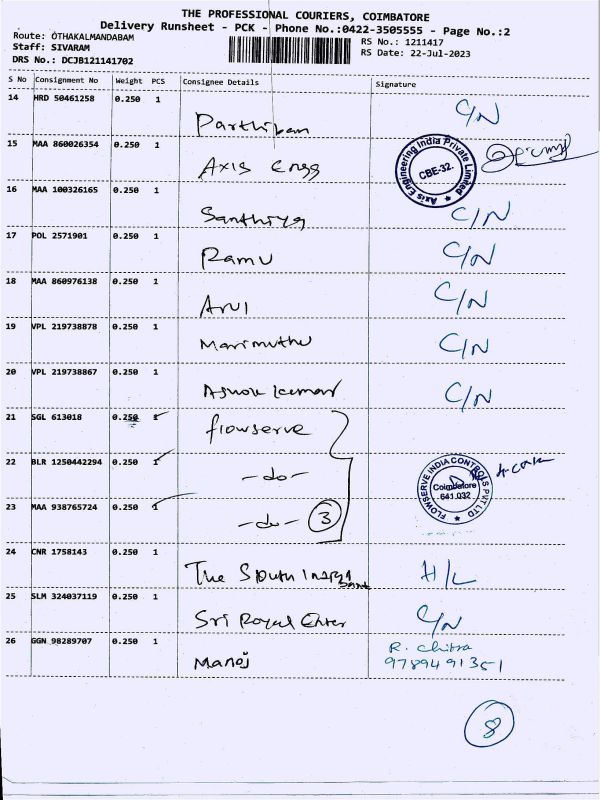 THE PROFESSIONAL COURIERS, COIMBATORE
Delivery Runsheet - PCK - Phone No.:0422-3505555 - Page No.:2
Route: OTHAKALMANDABAM
Staff: SIVARAM
DRS No.: DCJB121141702
RS No.: 1211417
RS Date: 22-Jul-2023
S No Consignment No Weight PCS Consignee Details Signature
14 HRD 50461258 0.250 1 Parthiban C/N
15 MAA 860026354 0.250 1 Axis Engg
Axis Engineering India Private Limited
CBE-32.
16 MAA 100326165 0.250 1 Santhiya C/N
17 POL 2571901 0.250 1 Ramu C/N
18 MAA 860976138 0.250 1 Arul C/N
19 VPL 219738878 0.250 1 Marimuthu C/N
20 VPL 219738867 0.250 1 Ashok kumar C/N
21 SGL 613018 0.250 1 flowserve
22 BLR 1250442294 0.250 1 -do-
FLOWSERVE INDIA CONTROLS PVT LTD
Coimbatore
641 032
23 MAA 938765724 0.250 1 -do- 3
24 CNR 1758143 0.250 1 The South Indian Bank H/L
25 SLM 324037119 0.250 1 Sri Royal Enter C/N
26 GGN 98289707 0.250 1 Manoj R. Chitra
9789491351
8